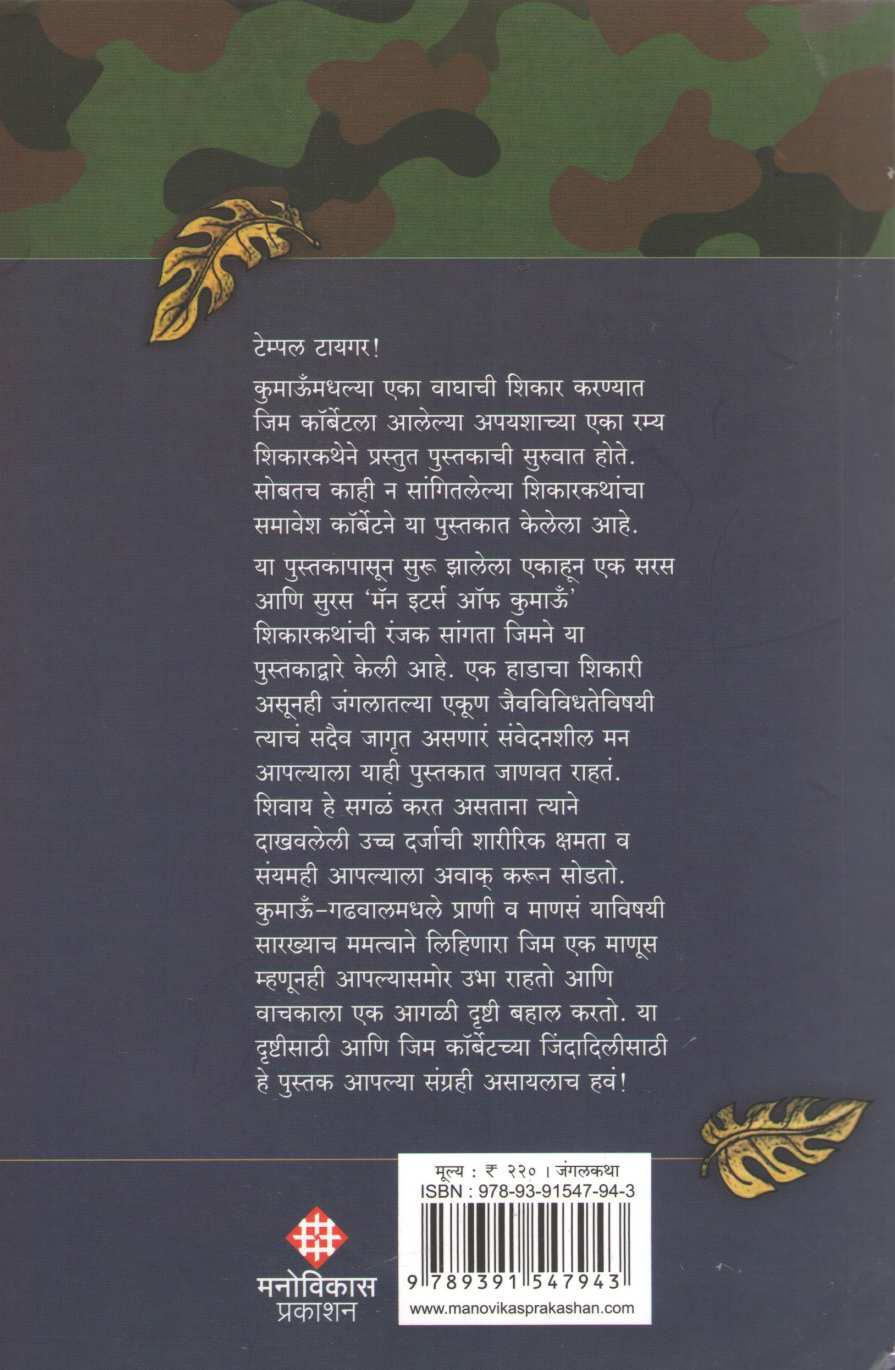 टेम्पल टायगर!
कुमाऊँमधल्या एका वाघाची शिकार करण्यात
जिम कॉर्बेटला आलेल्या अपयशाच्या एका रम्य
शिकारकथेने प्रस्तुत पुस्तकाची सुरुवात होते.
सोबतच काही न सांगितलेल्या शिकारकथांचा
समावेश कॉर्बेटने या पुस्तकात केलेला आहे.
या पुस्तकापासून सुरू झालेला एकाहून एक सरस
आणि सुरस ‘मॅन इटर्स ऑफ कुमाऊँ’
शिकारकथांची रंजक सांगता जिमने या
पुस्तकाद्वारे केली आहे. एक हाडाचा शिकारी
असूनही जंगलातल्या एकूण जैवविविधतेविषयी
त्याचं सदैव जागृत असणारं संवेदनशील मन
आपल्याला याही पुस्तकात जाणवत राहतं.
शिवाय हे सगळं करत असताना त्याने
दाखवलेली उच्च दर्जाची शारीरिक क्षमता व
संयमही आपल्याला अवाक् करून सोडतो.
कुमाऊँ-गढवालमधले प्राणी व माणसं याविषयी
सारख्याच ममत्वाने लिहिणारा जिम एक माणूस
म्हणूनही आपल्यासमोर उभा राहतो आणि
वाचकाला एक आगळी दृष्टी बहाल करतो. या
दृष्टीसाठी आणि जिम कॉर्बेटच्या जिंदादिलीसाठी
हे पुस्तक आपल्या संग्रही असायलाच हवं!
मूल्य : ₹ २२० । जंगलकथा
ISBN : 978-93-91547-94-3
9 789391 547943
www.manovikasprakashan.com
मनोविकास
प्रकाशन